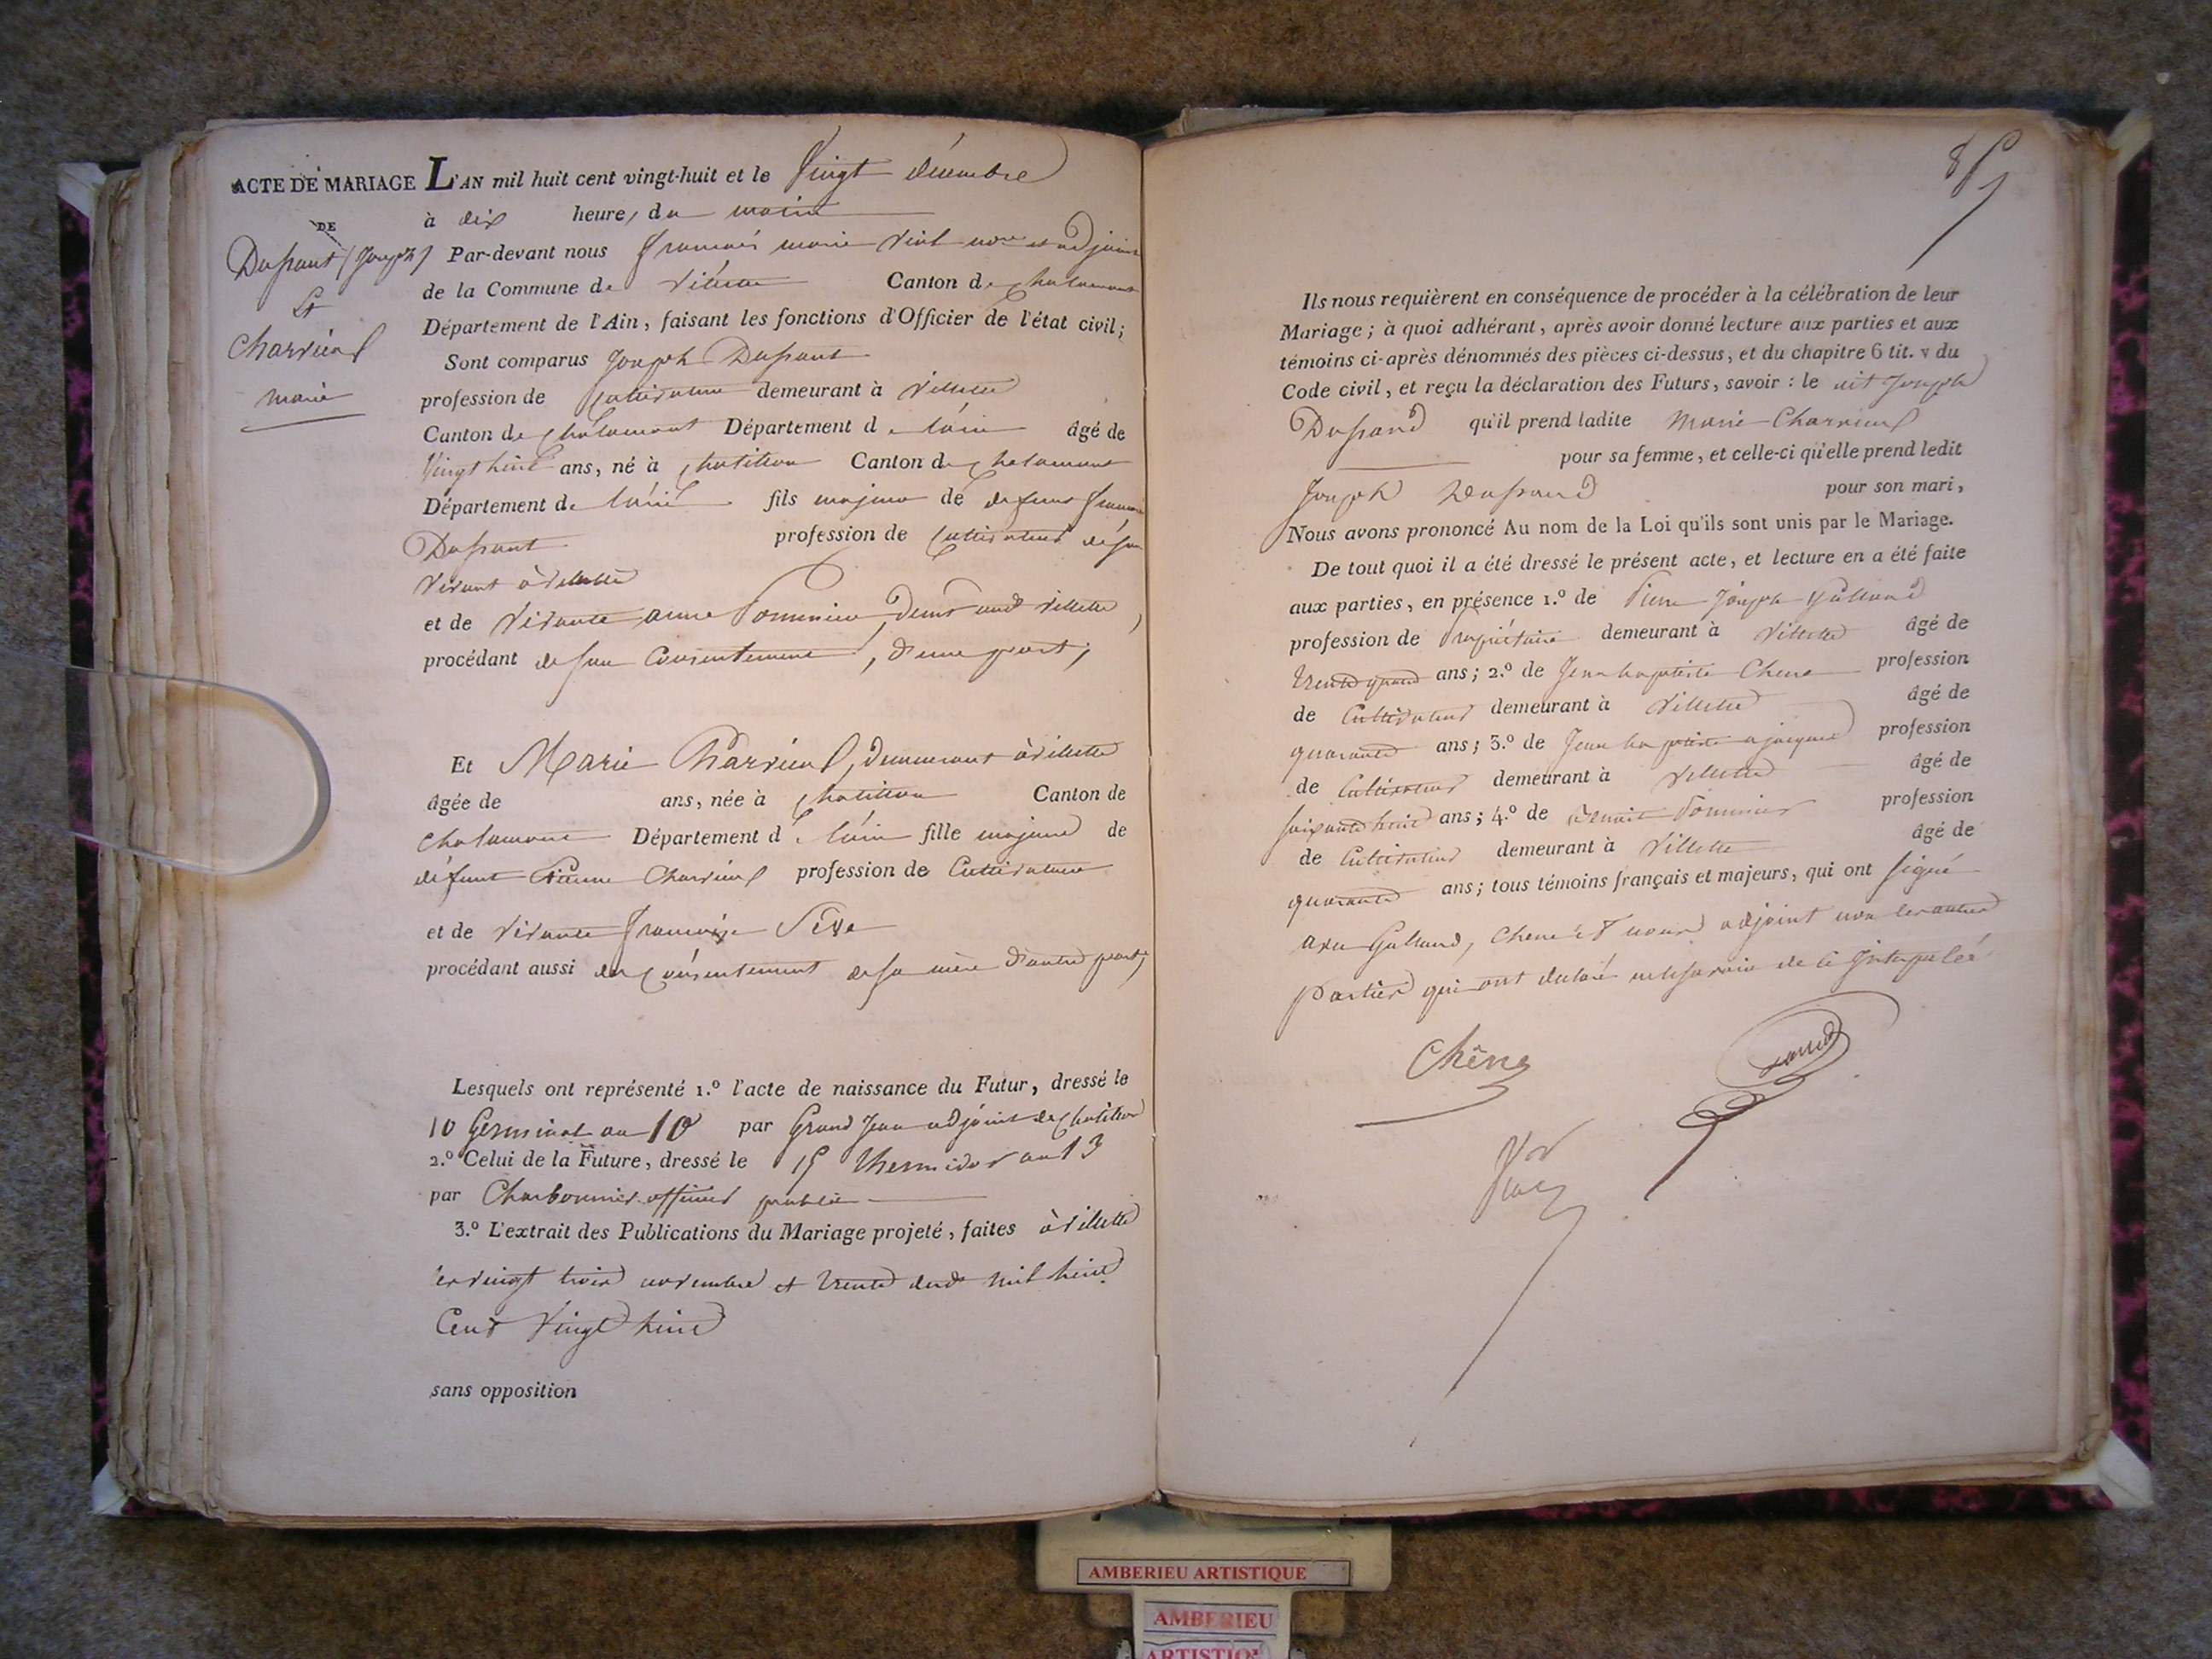 ACTE DE MARIAGE L'AN mil huit cent vingt-huit et le Vingt décembre
DE
à dix heure, du matin
Dufrant (Joseph) Par-devant nous françois marie adjoint
de la Commune de Villette Canton de chalamont
Et
Département de l'Ain, faisant les fonctions d'Officier de l'état civil;
Charvieux
Sont comparus Joseph Dufrant
marie
profession de Cultivateur demeurant à Villette
Canton de chalamont Département de l'ain âgé de
Vingt huit ans, né à chatillon Canton de chalamont
Département de l'ain fils majeur de defunt
Dufrant profession de Cultivateur de son
Vivant à Villette
et de Vivante anne Pommier, Villette
procédant de son Consentement, d'une part;
Et Marie Charvieux, demeurant à Villette
âgée de ans, née à chatillon Canton de
chalamont Département de l'ain fille majeure de
défunt Charvieux profession de Cultivateur
et de Vivante françoise Sève
procédant aussi du Consentement de sa mère d'autre part,
Lesquels ont représenté 1.º l'acte de naissance du Futur, dressé le
10 Germinal an 10 par Grand Jean adjoint de Chatillon
2.º Celui de la Future, dressé le 15 thermidor an 13
par Charbonnier officier public
3.º L'extrait des Publications du Mariage projeté, faites à Villette
les vingt trois novembre et trente dud. mil huit
Cent Vingt huit
sans opposition
Ils nous requièrent en conséquence de procéder à la célébration de leur
Mariage; à quoi adhérant, après avoir donné lecture aux parties et aux
témoins ci-après dénommés des pièces ci-dessus, et du chapitre 6 tit. v du
Code civil, et reçu la déclaration des Futurs, savoir: le dit Joseph
Dufrand qu'il prend ladite Marie Charvieux
pour sa femme, et celle-ci qu'elle prend ledit
Joseph Dufrand pour son mari,
Nous avons prononcé Au nom de la Loi qu'ils sont unis par le Mariage.
De tout quoi il a été dressé le présent acte, et lecture en a été faite
aux parties, en présence 1.º de Pierre Joseph Galland
profession de propriétaire demeurant à Villette âgé de
trente quatre ans; 2.º de Jean baptiste Chene profession
de Cultivateur demeurant à Villette âgé de
quarante ans; 3.º de Jean baptiste profession
de Cultivateur demeurant à Villette âgé de
soixante huit ans; 4.º de Benoit Pommier profession
de Cultivateur demeurant à Villette âgé de
quarante ans; tous témoins français et majeurs, qui ont signé
avec Galland, Chene et nous adjoint non les autres
parties qui ont declaré ne le savoir de ce interpelés
Chêne
AMBERIEU ARTISTIQUE
AMBERIEU
ARTISTIQ